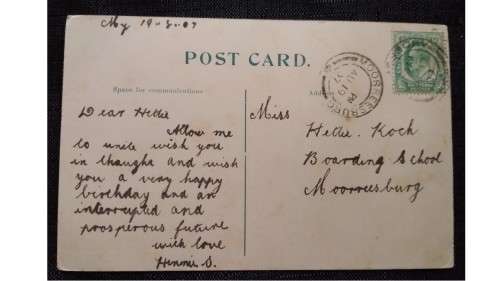 My 19-8-07
POST CARD.
Space for communications
Dear Hettie
Allow me
to unite wish you
in thaugha and wish
you a very happy
birthday and an
interrupted and
prosperous future
with love
Hinnie S.
Miss
Hettie Koch
Boarding School
Moorreesburg
MOORREESBURG
PM
AU 19
07